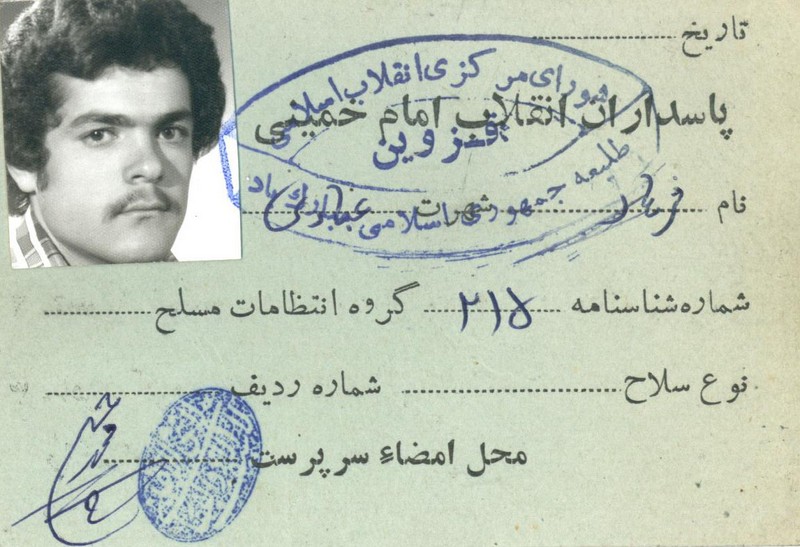 تاریخ
شورای مرکزی انقلاب اسلامی
پاسداران انقلاب امام خمینی
قزوین
طلیعه جمهوری اسلامی مبارک باد
نام فرهاد شهرت
شماره شناسنامه ۲۱۵ گروه انتظامات مسلح
نوع سلاح شماره ردیف
محل امضاء سرپرست